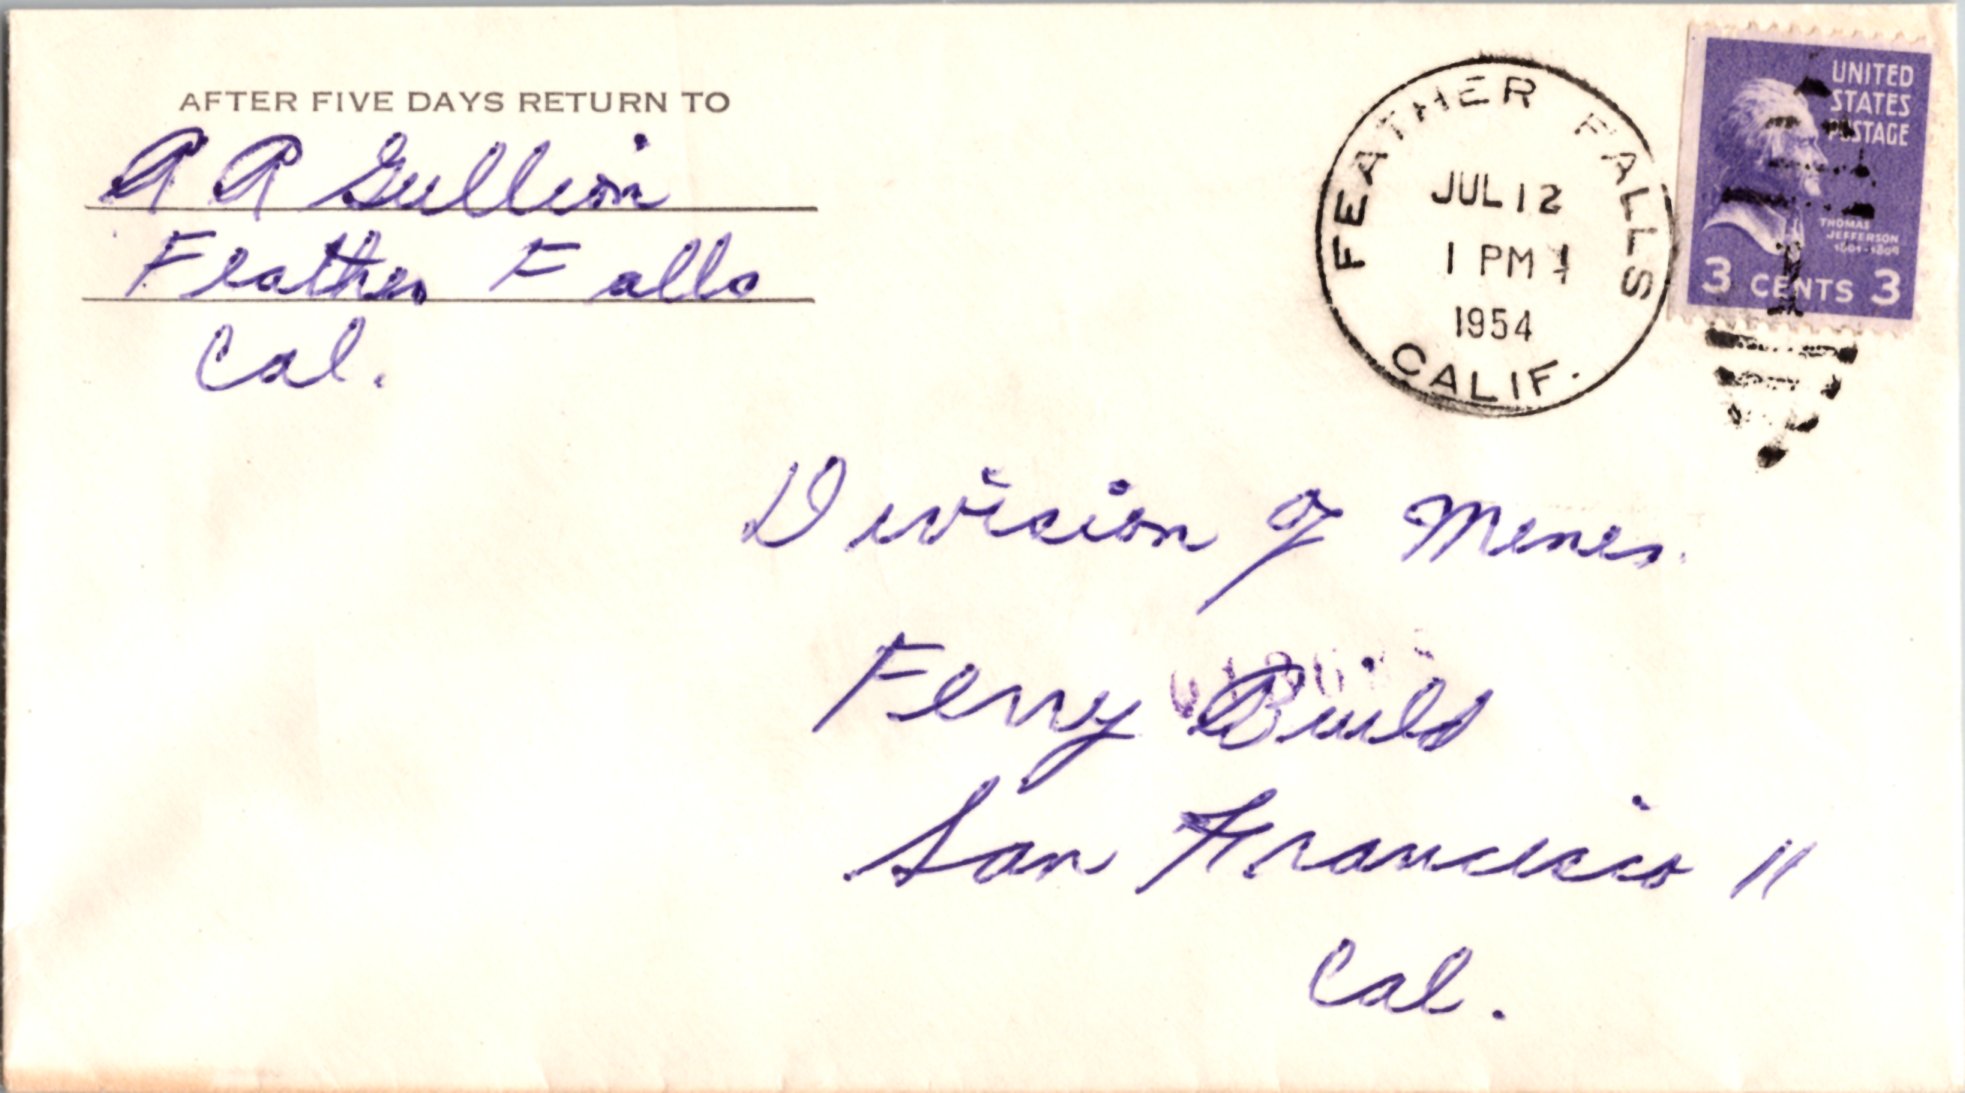 AFTER FIVE DAYS RETURN TO
A A Gullion
Feather Falls
Cal.
FEATHER FALLS
JUL 12
1 PM
1954
CALIF.
UNITED
STATES
POSTAGE
THOMAS
JEFFERSON
1801-1809
3 CENTS 3
Division of Mines
Ferry Build
San Francisco 11
Cal.